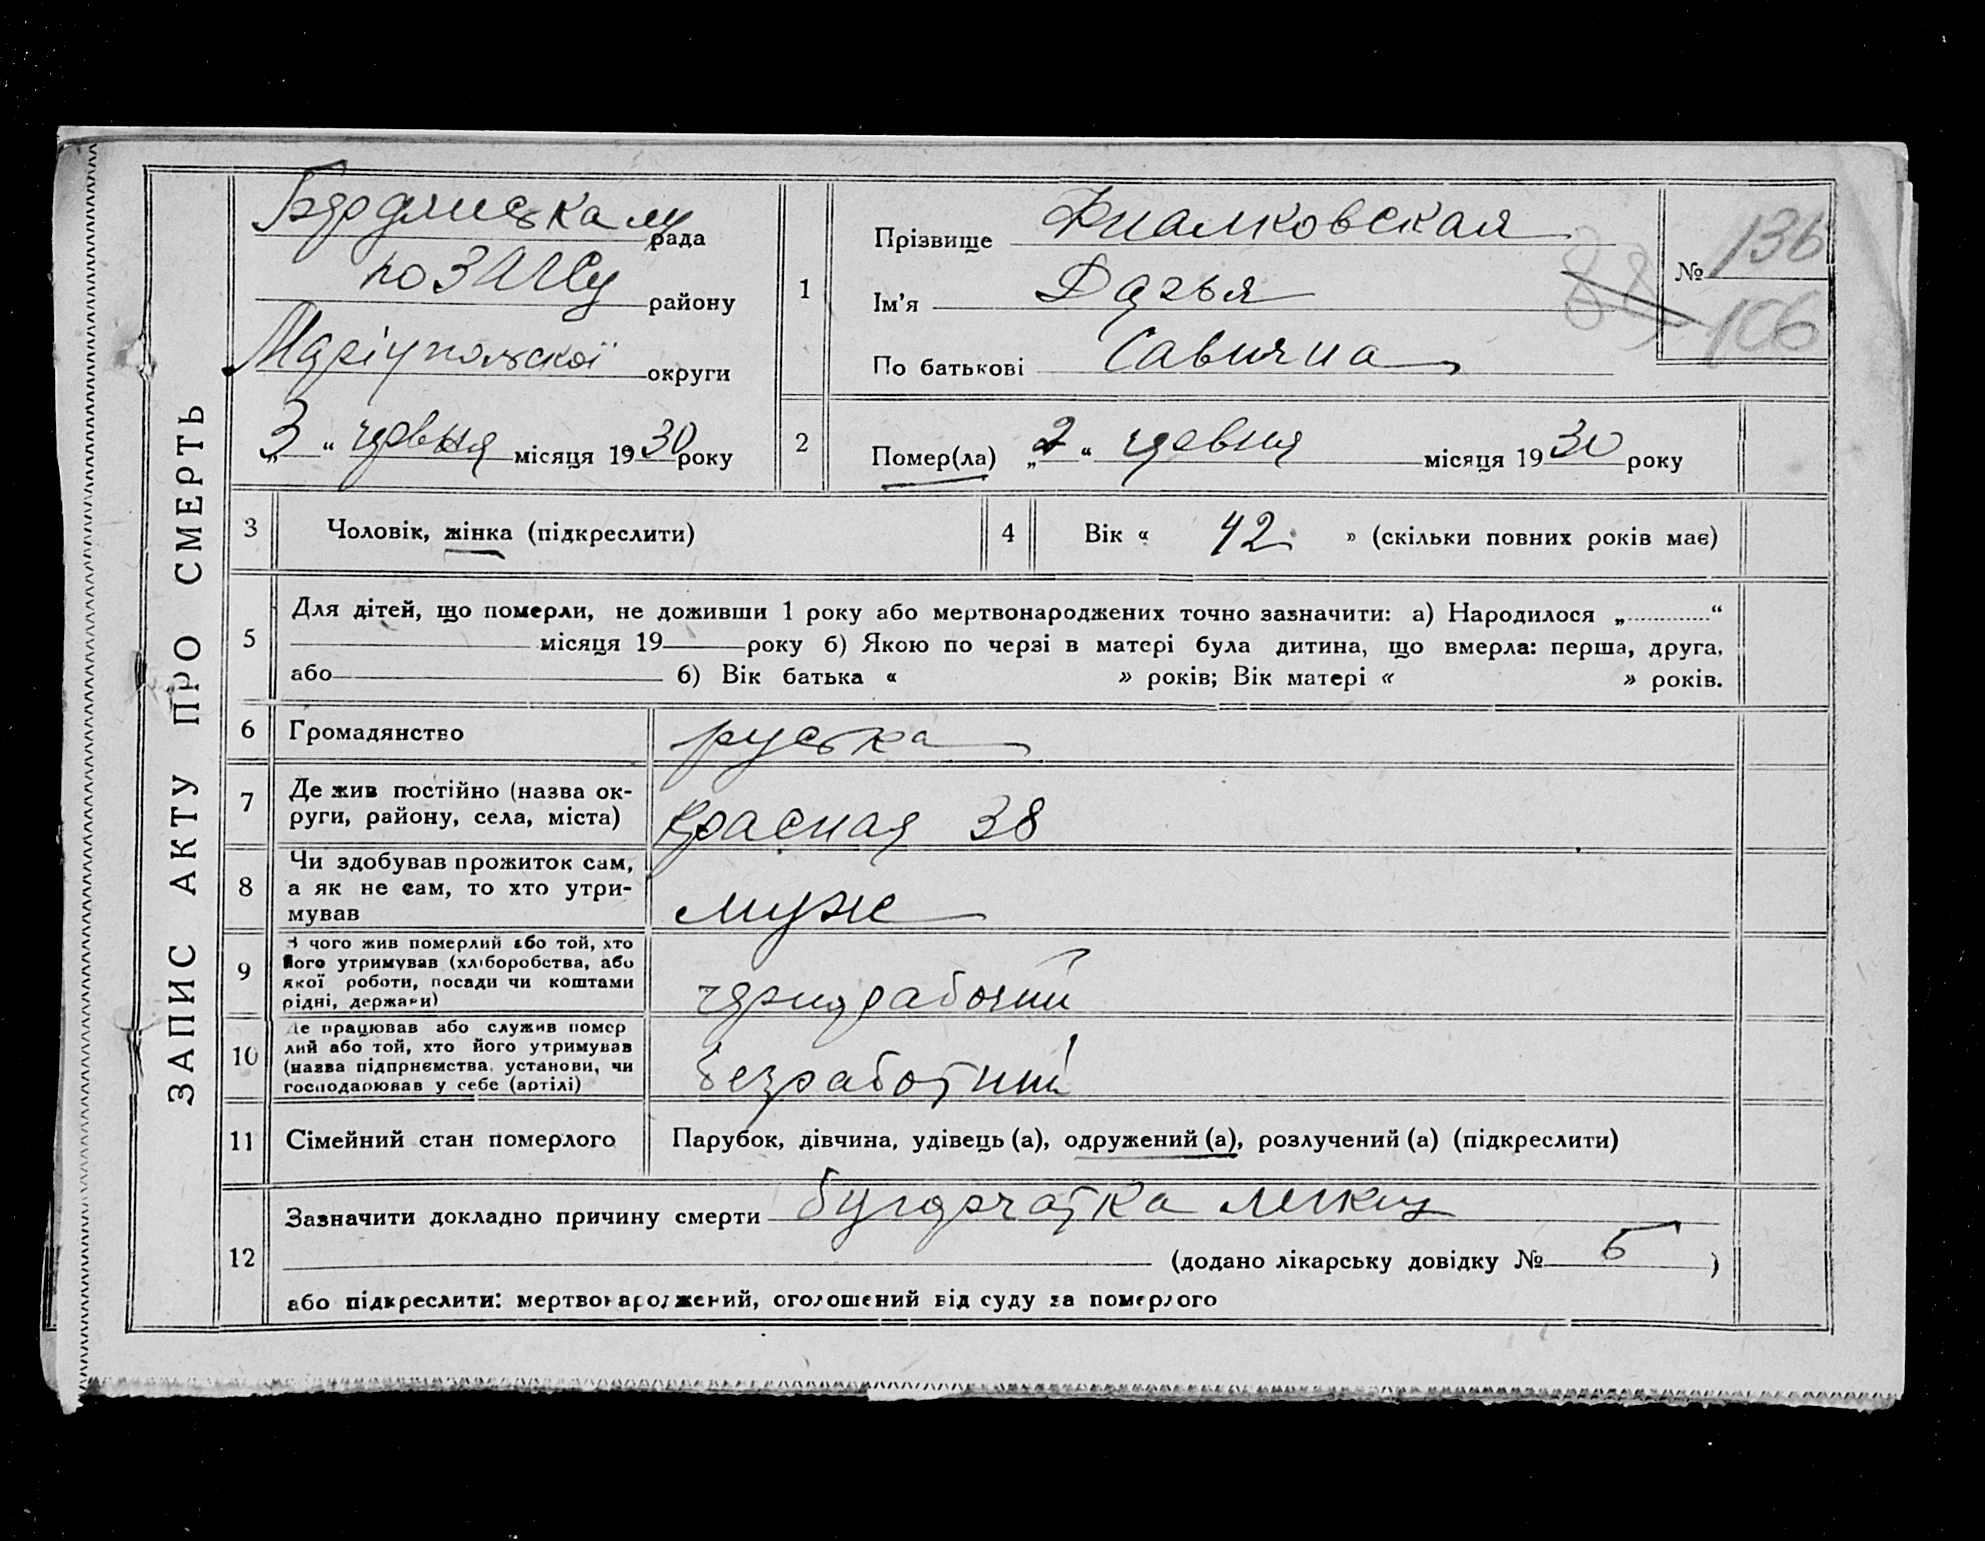 ЗАПИС АКТУ ПРО СМЕРТЬ
рада
по ЗАГСу району
Маріупольскої округи
„3“ червня місяця 1930 року
1
Прізвище Фиалковская
Ім'я Дарья
По батькові Савична
№ 136
88
106
2
Помер(ла) „2“ червня місяця 1930 року
3
Чоловік, жінка (підкреслити)
4
Вік « 42 » (скільки повних років має)
5
Для дітей, що померли, не доживши 1 року або мертвонароджених точно зазначити: а) Народилося „ “
місяця 19 року б) Якою по черзі в матері була дитина, що вмерла: перша, друга,
або б) Вік батька « » років; Вік матері « » років.
6
Громадянство руська
7
Де жив постійно (назва ок-
руги, району, села, міста) Красная 38
8
Чи здобував прожиток сам,
а як не сам, то хто утри-
мував муж
9
З чого жив померлий або той, хто
його утримував (хліборобства, або
якої роботи, посади чи коштами
рідні, держави) чернорабочий
10
Де працював або служив помер
лий або той, хто його утримував
(назва підприємства, установи, чи
господарював у себе (артілі) безработний
11
Сімейний стан померлого
Парубок, дівчина, удівець (а), одружений (а), розлучений (а) (підкреслити)
12
Зазначити докладно причину смерти бугорчатка легких
(додано лікарську довідку № 5 )
або підкреслити: мертвонароджений, оголошений від суду за померлого